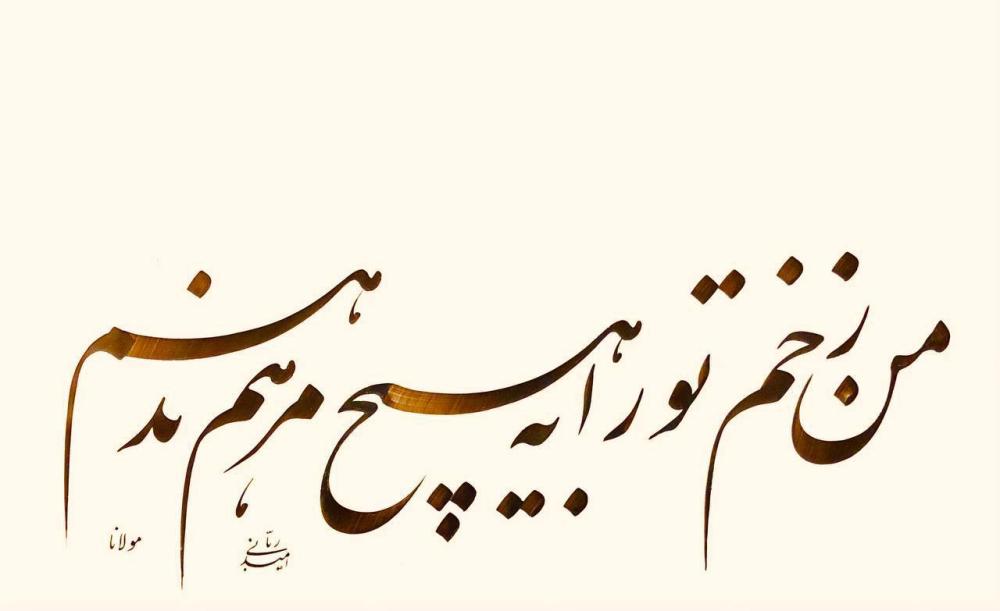 من زخم تو را به هیچ مرهم ندهم
امید ربانی
مولانا